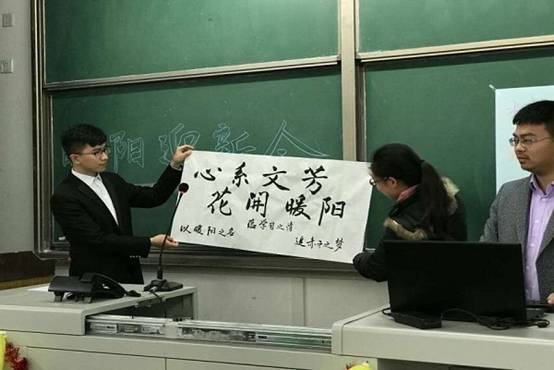 阳迎新会
心系文芳
花開暖阳
以暖阳之名
学習之情
赤子之梦